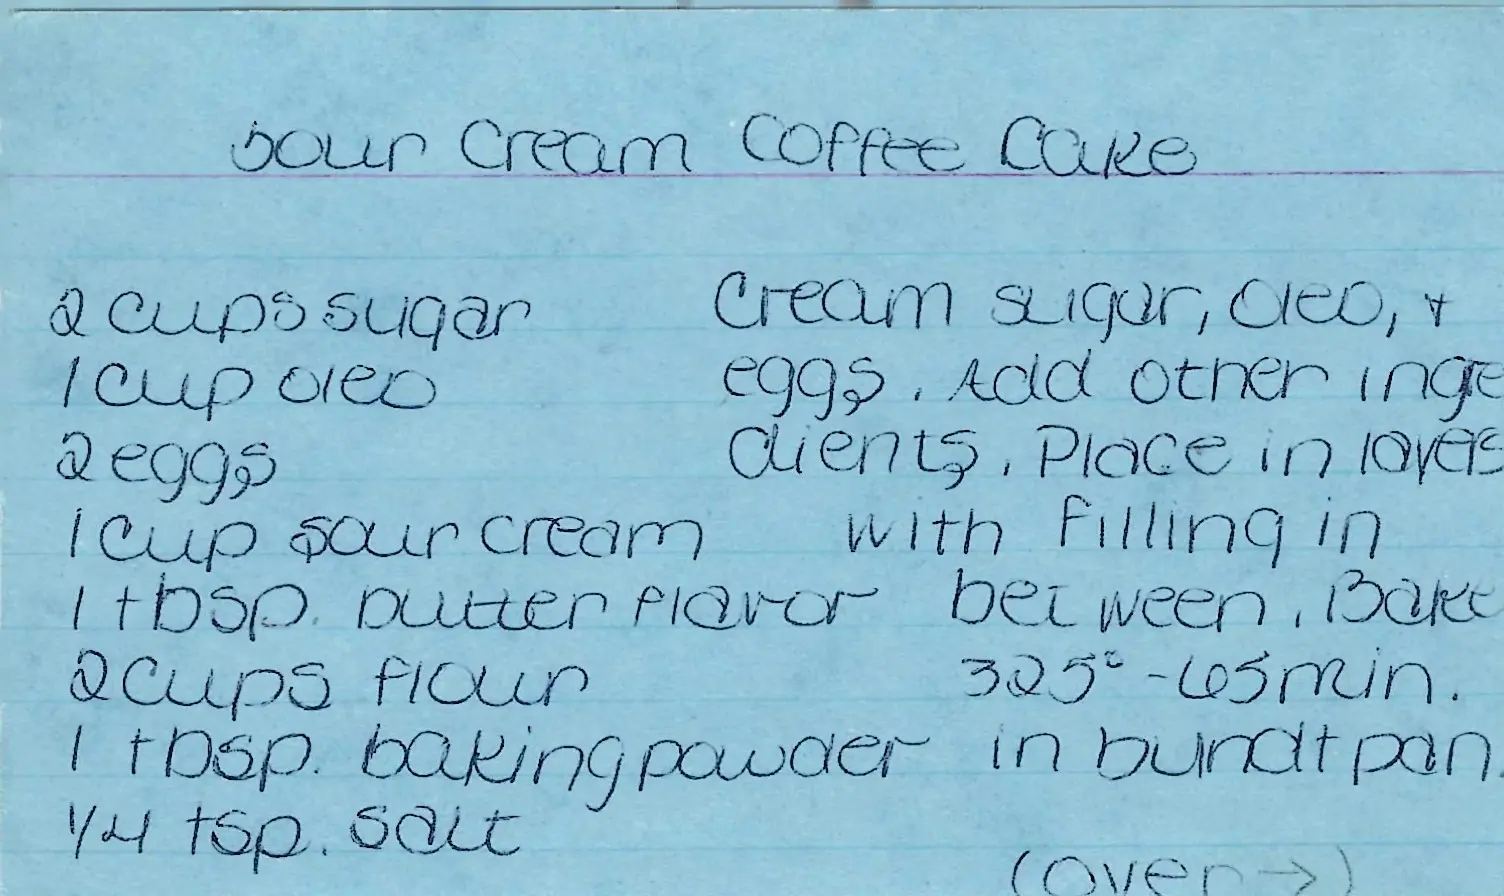 Sour Cream Coffee Cake
2 cups sugar
1 cup oleo
2 eggs
1 cup sour cream
1 tbsp. butter flavor
2 cups flour
1 tbsp. baking powder
1/4 tsp. salt
Cream sugar, oleo, +
eggs. Add other ingre
dients. Place in layers
with filling in
between. Bake
325° - 65 min.
in bundt pan.
(over →)